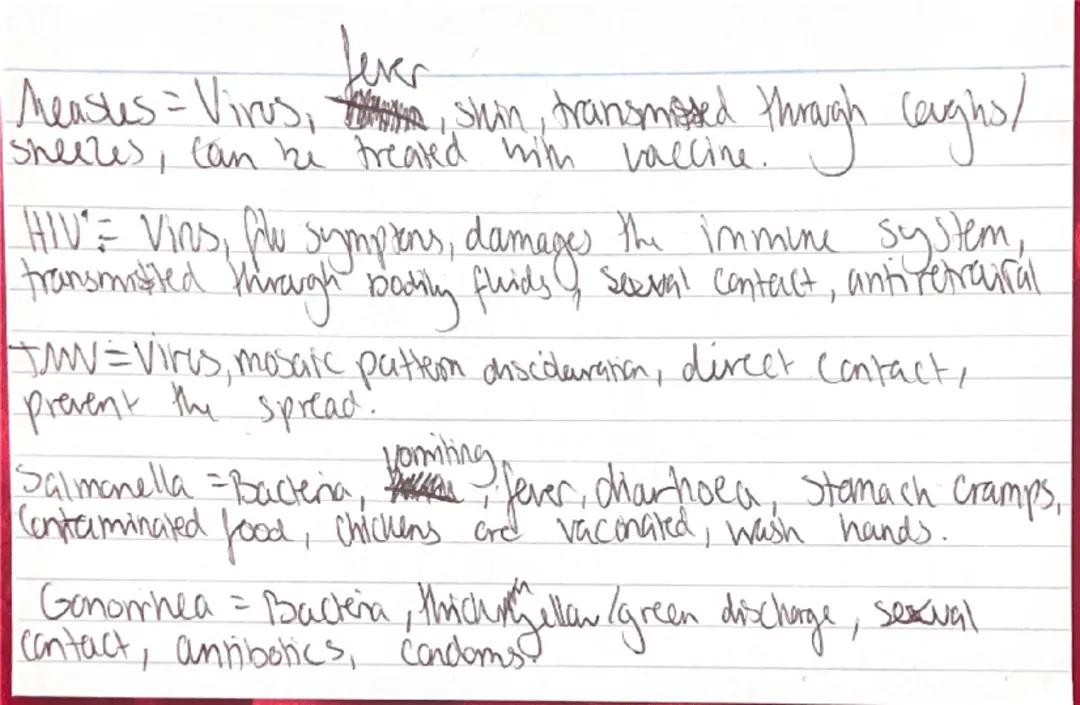 fever
Measles = Virus, , skin, transmitted through coughs/
sneezes, can be treated with vaccine.
HIV = Virus, flu symptoms, damages the immune system,
transmitted through bodily fluids, sexual contact, antiretroviral
TMV = Virus, mosaic pattern discolouration, direct contact,
prevent the spread.
vomiting
Salmonella = Bacteria, , fever, diarrhoea, stomach cramps,
contaminated food, chickens are vaccinated, wash hands.
Gonorrhea = Bacteria, thick yellow/green discharge, sexual
contact, antibiotics, condoms.